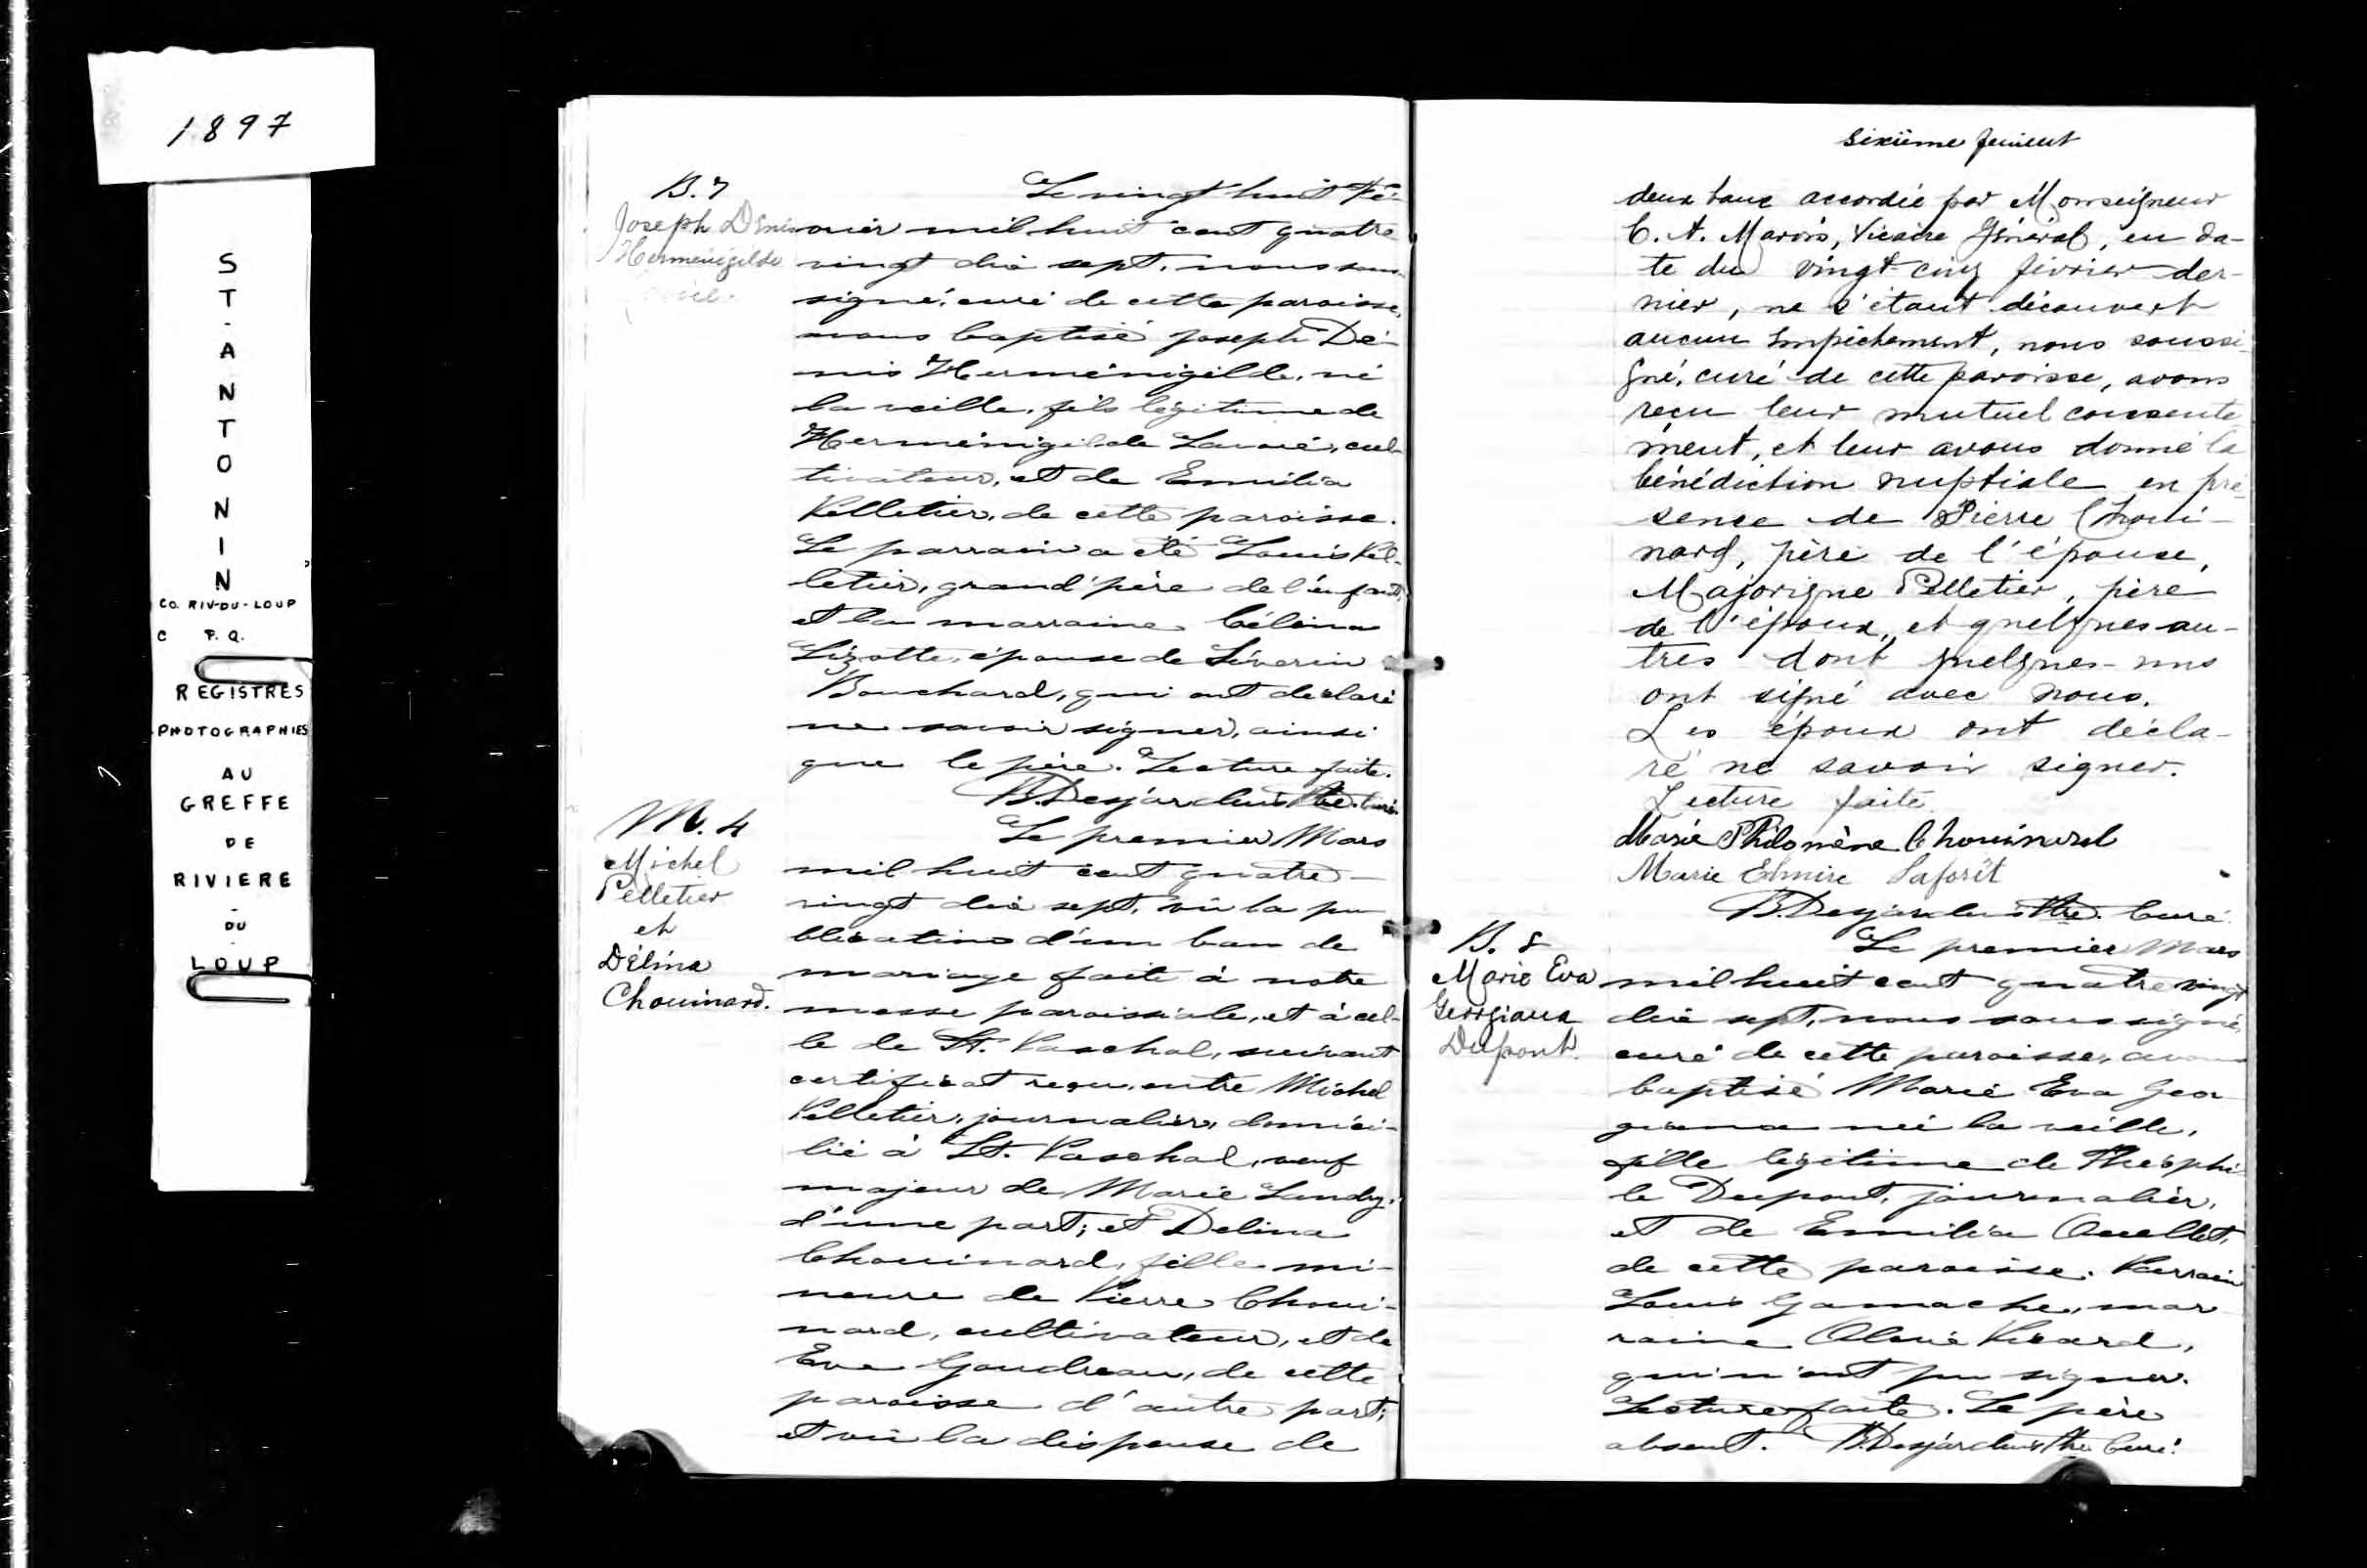 1897
ST-ANTONIN
CO. RIV-DU-LOUP
C P.Q.
REGISTRES
PHOTOGRAPHIES
AU
GREFFE
DE
RIVIERE
-
DU
LOUP
B. 7
Joseph Denis
Herménégilde
Le vingt huit Fé-
vrier mil huit cent quatre
vingt dix sept, nous sous-
signé, curé de cette paroisse,
avons baptisé Joseph Dé-
nis Herménigilde, né
la veille, fils légitime de
Herménigilde Lavoié, cul-
tivateur, et de Emilia
Pelletier, de cette paroisse.
Le parrain a été Louis Pel-
letier, grand'père de l'enfant,
et la marraine Célina
Lizotte, épouse de Séverin
Bouchard, qui ont déclaré
ne savoir signer, ainsi
que le père. Lecture faite.
B. Desjardins Ptre. Curé.
M. 4
Michel
Pelletier
et
Délina
Chouinard.
Le premier Mars
mil huit cent quatre-
vingt dix sept, vû la pu
blication d'un ban de
mariage faite à notre
messe paroissiale, et à cel-
le de St. Paschal, suivant
certificat reçu, entre Michel
Pelletier, journalier, domici-
lié à St. Paschal, veuf
majeur de Marie Landry,
d'une part; et Delina
Chouinard, fille mi-
neure de Pierre Choui-
nard, cultivateur, et de
Eve Gaudreau, de cette
paroisse d'autre part;
et vû la dispense de
Sixième feuillet
deux bans accordée par Monseigneur
C. A. Marois, Vicaire Général, en da-
te du vingt-cinq février der-
nier, ne s'étant découvert
aucun empêchement, nous soussi-
gné, curé de cette paroisse, avons
reçu leur mutuel consente
ment, et leur avons donné la
bénédiction nuptiale en pré-
sence de Pierre Choui-
nard, père de l'épouse,
Majorique Pelletier, père
de l'époux, et quelques au-
tres dont quelques-uns
ont signé avec nous.
Les époux ont décla-
ré ne savoir signer.
Lecture faite
Marie Philomène Chouinard
Marie Elmire Laforêt
B. Desjardins Ptre. Curé
B. 8
Marie Eva
Georgiana
Dupont.
Le premier Mars
mil huit cent quatre vingt
dix sept, nous soussigné,
curé de cette paroisse, avons
baptisé Marie Eva Geor
giana née la veille,
fille légitime de Théophi-
le Dupont, journalier,
et de Emilia Ouellet,
de cette paroisse. Parrain
Louis Gamache, mar
raine Picard,
qui n'ont pu signer.
Lecture faite. Le père
absent. B. Desjardins Ptre Curé.